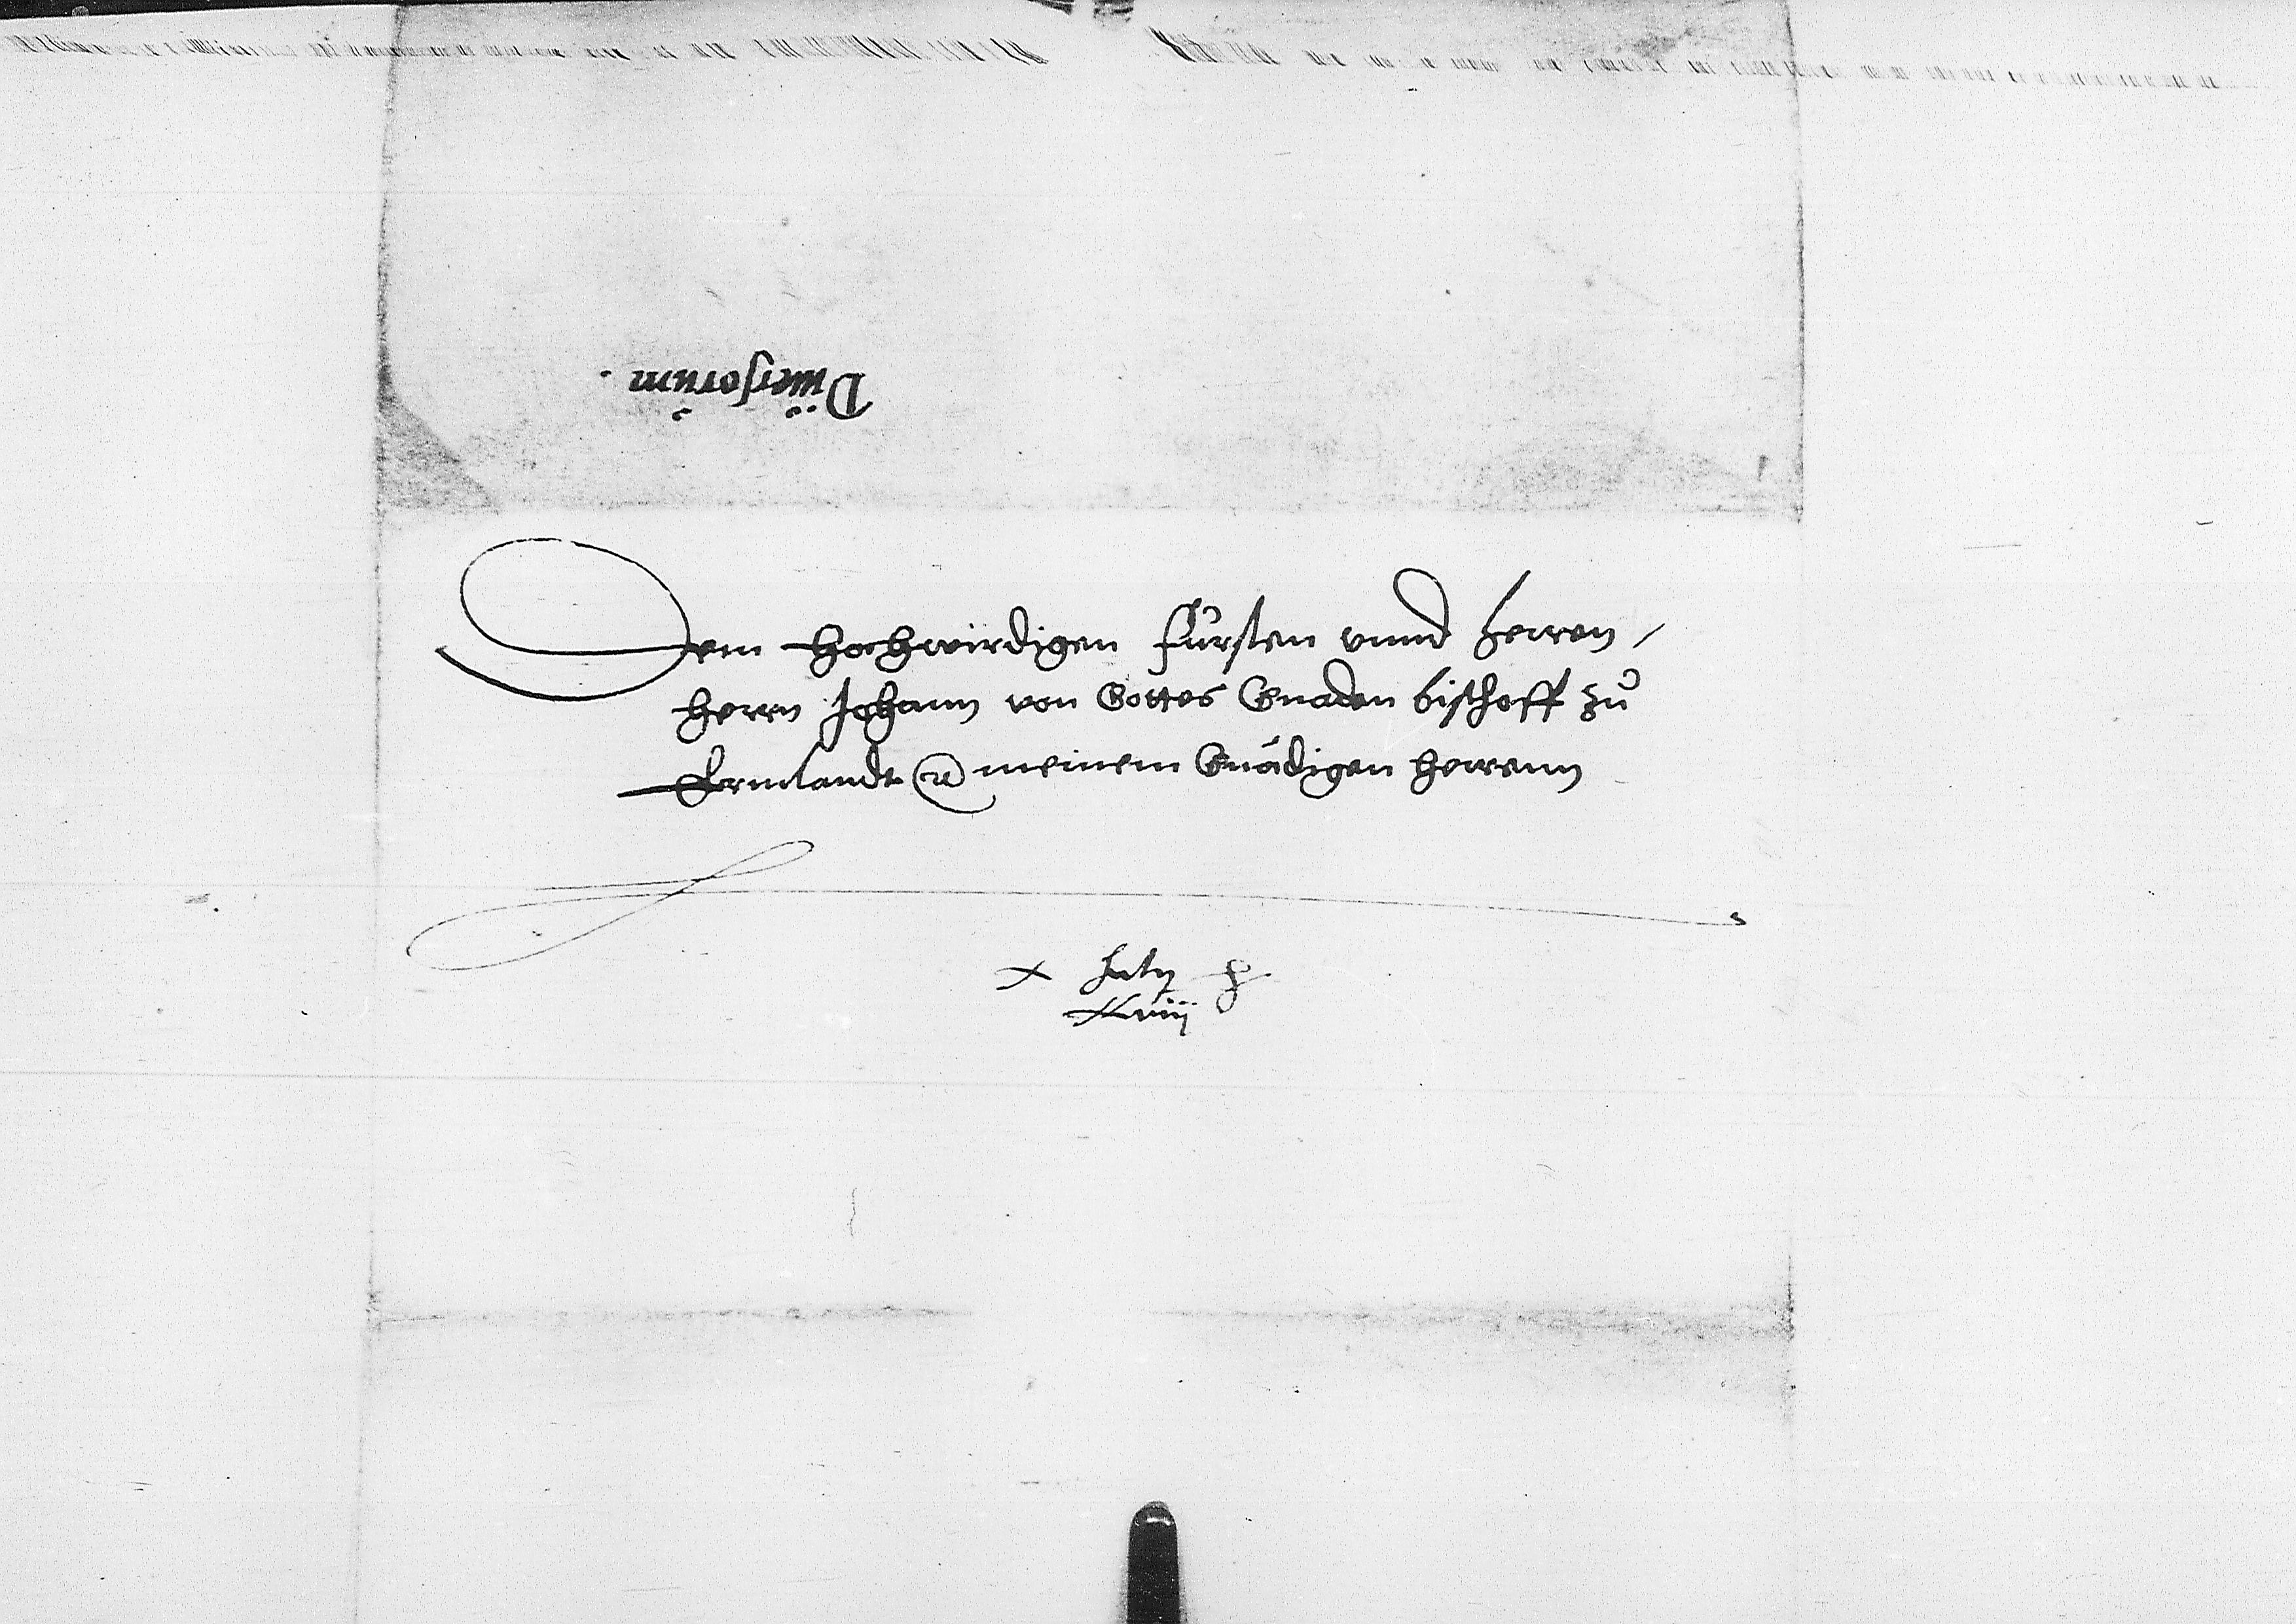 Diuersorum.
Dem hochwirdigen Fürsten vnnd herren /
herrn Johann von Gottes Gnaden bischoff zů
Ermlandt &c meinem Gnädigen herrenn
x July